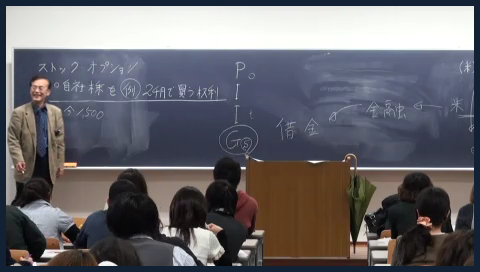 ストック オプション
自社株を 例 2千円で買う权利
今 1,500
P
I
I
G
S
借金
金融
米